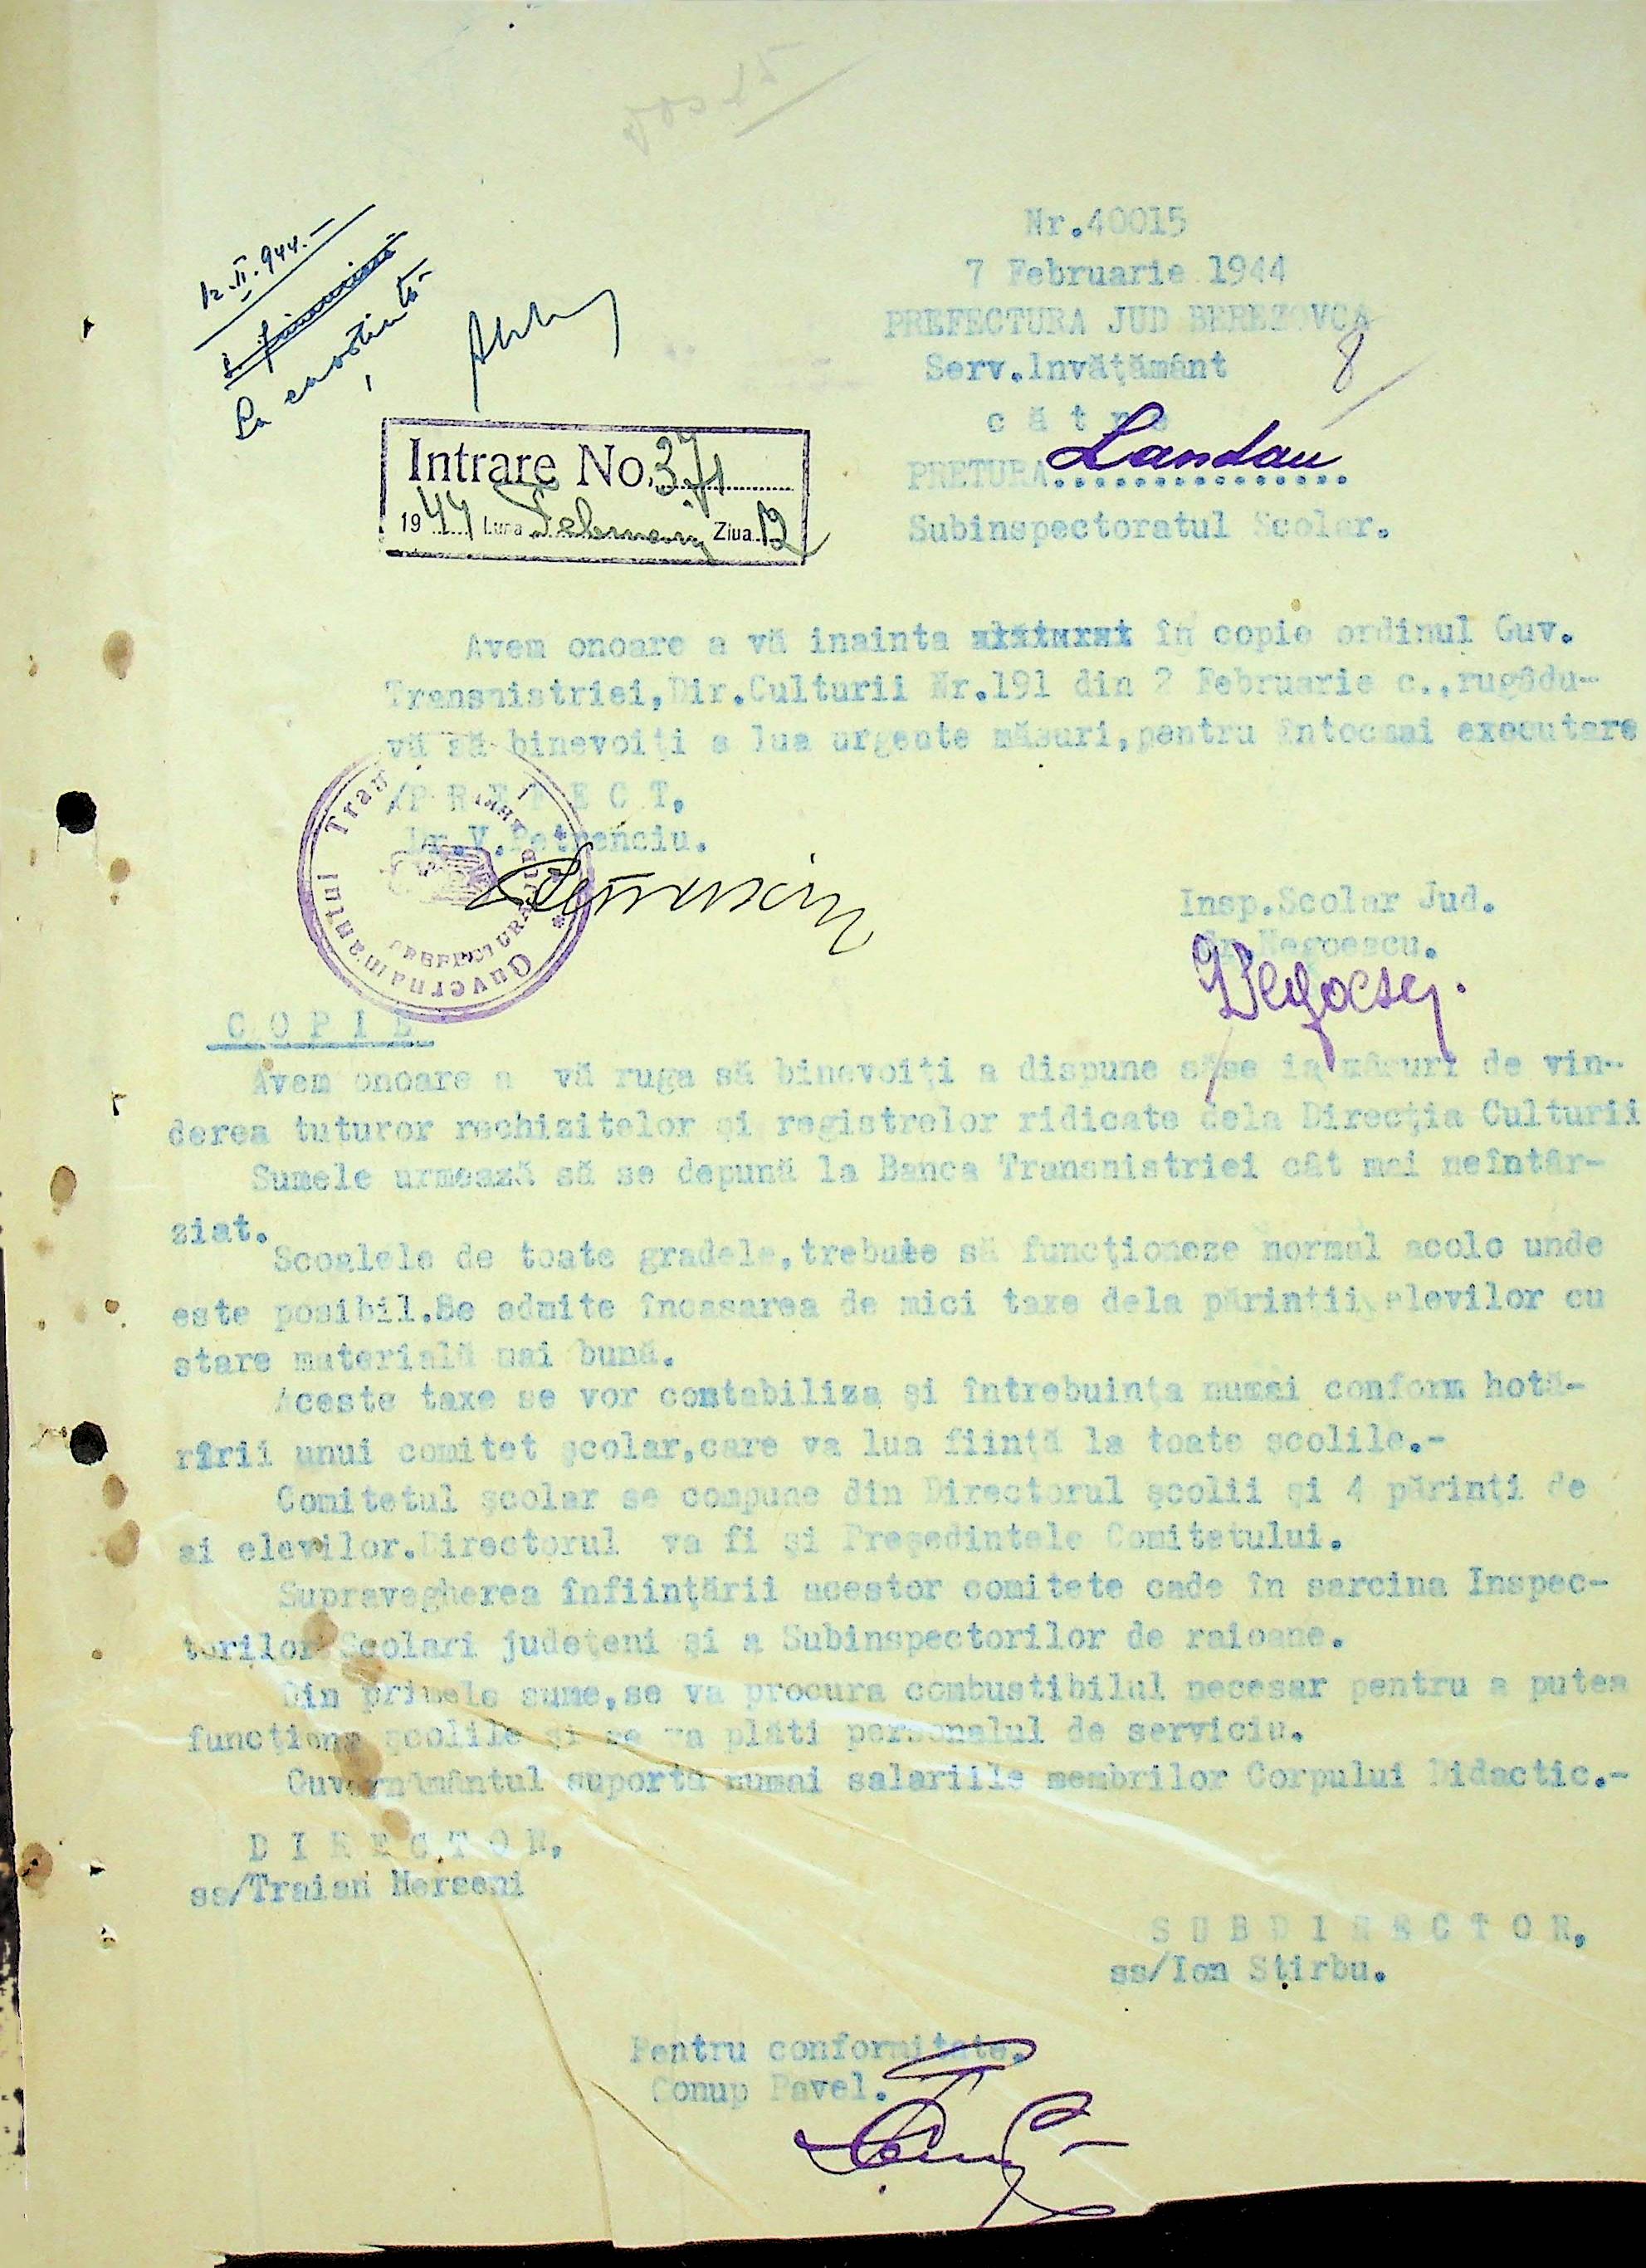 12.II.944.-
La cunoștință
Nr.40015
7 Februarie 1944
PREFECTURA JUD BEREZOVCA
Serv.Invăţământ
8
c ă t r e
PRETURA Landau
Subinspectoratul Scolar.
Intrare No. 371
1944 Luna Februarie Ziua 12
Avem onoare a vă inainta alăturat în copie ordinul Guv.
Transnistriei,Dir.Culturii Nr.191 din 2 Februarie c.,rugâdu-
vă să binevoiţi a lua urgente măsuri,pentru întocmai executare
/P R E F E C T.
V.Petrenciu.
Guvernamantul Tran
PREFECTURA JUD
Insp.Scolar Jud.
Negoescu.
C O P I E
Avem onoare a vă ruga să binevoiţi a dispune să se ia măsuri de vin-
derea tuturor rechizitelor şi registrelor ridicate dela Direcţia Culturii
Sumele urmează să se depună la Banca Transnistriei cât mai neîntâr-
ziat.
Scoalele de toate gradele,trebuie să funcţioneze normal acolo unde
este posibil.Se admite încasarea de mici taxe dela părinţii elevilor cu
stare materială mai bună.
Aceste taxe se vor contabiliza şi întrebuinţa numai conform hotă-
rîrii unui comitet şcolar,care va lua fiinţă la toate şcolile.-
Comitetul şcolar se compune din Directorul şcolii şi 4 părinţi de
ai elevilor.Directorul va fi şi Preşedintele Comitetului.
Supravegherea înfiinţării acestor comitete cade în sarcina Inspec-
torilor Scolari judeţeni şi a Subinspectorilor de raioane.
Din primele sume,se va procura combustibilul necesar pentru a putea
funcţiona şcolile şi se va plăti personalul de serviciu.
Guvernământul suportă numai salariile membrilor Corpului Didactic.-
D I R E C T O R,
ss/Traian Herseni
S U B D I R E C T O R,
ss/Ion Stirbu.
Pentru conformitate.
Conup Pavel.